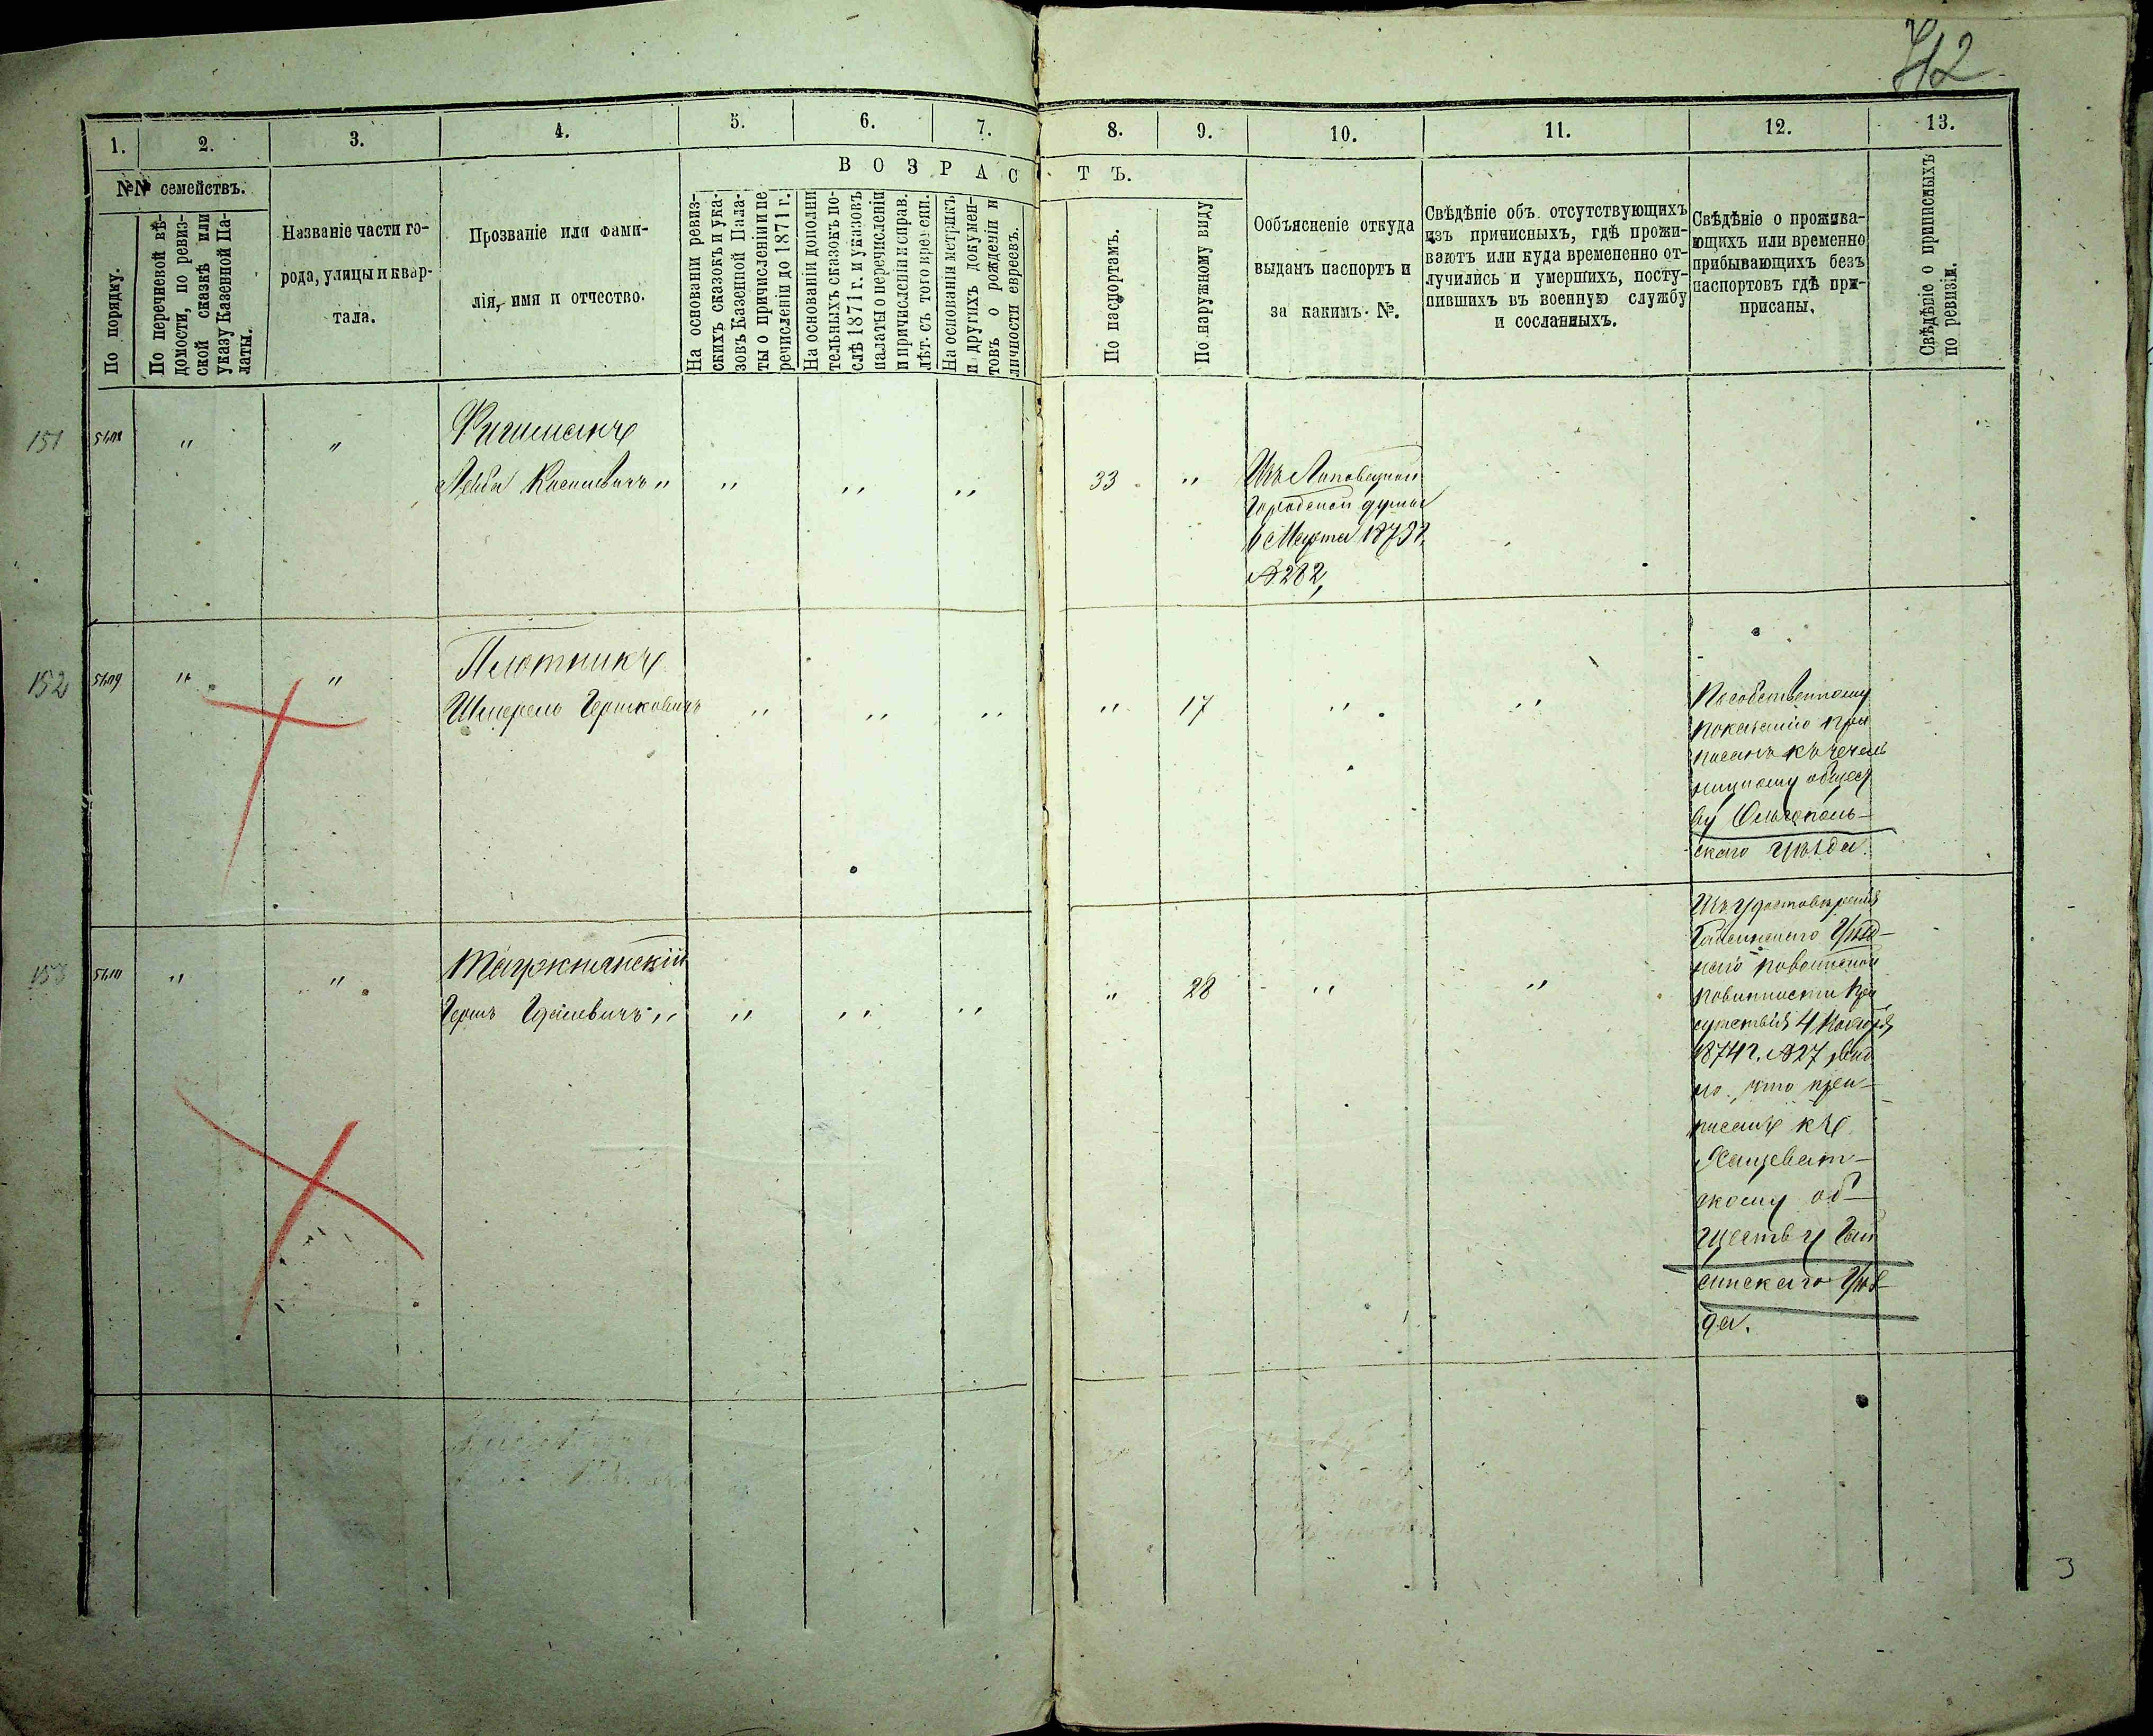 712
1.
2.
3.
4.
5.
6.
7.
8.
9.
10.
11.
12.
13.
№№ семействъ.
В О З Р А С Т Ъ.
По порядку.
По перечневой вѣ-
домости, по ревиз-
ской сказкѣ или
указу Казенной Па-
латы.
Названіе части го-
рода, улицы и квар-
тала.
Прозваніе или фами-
лія, имя и отчество.
На основаніи ревиз-
скихъ сказокъ и ука-
зовъ Казенной Пала-
ты о причисленіи и пе
речисленіи до 1871 г.
На основаніи дополни
тельныхъ сказокъ по-
слѣ 1871 г. и указовъ
палаты о перечисленіи
и причисленіи и справ.
лѣт. съ того времени.
На основаніи метрикъ
и другихъ докумен-
товъ о рожденіи и
личности евреевъ.
По паспортамъ.
По наружному виду
Ообъясненіе откуда
выданъ паспортъ и
за какимъ №.
Свѣдѣніе объ отсутствующихъ
изъ приписныхъ, гдѣ прожи-
ваютъ или куда временно от-
лучились и умершихъ, посту-
пившихъ въ военную службу
и сосланныхъ.
Свѣдѣніе о прожива-
ющихъ или временно
прибывающихъ безъ
паспортовъ гдѣ при-
присаны.
Свѣдѣніе о приписныхъ
по ревизіи.
151
" "
Фишманъ
Лейба " " " "
33 "
Изъ Липовецкой
городской думы
6 Марта 187
№ 282,
152
" "
Плотникъ
Шмерель Гершковичъ " " "
" 17 " "
По собственному
показанію при
писанъ къ Чечель
ницкому общест
ву Ольгополь-
скаго уѣзда.
153
" "
Гершъ " " " "
" 28 " "
Изъ удостовѣренія
Гайсинскаго Уѣзд-
наго по воинской
повинности При
сутствія 4 Ноября
1874 г. № 27 вид
но, что при-
писанъ къ
Хащеват-
скому об-
ществу Гай
синскаго Уѣз-
да.
3